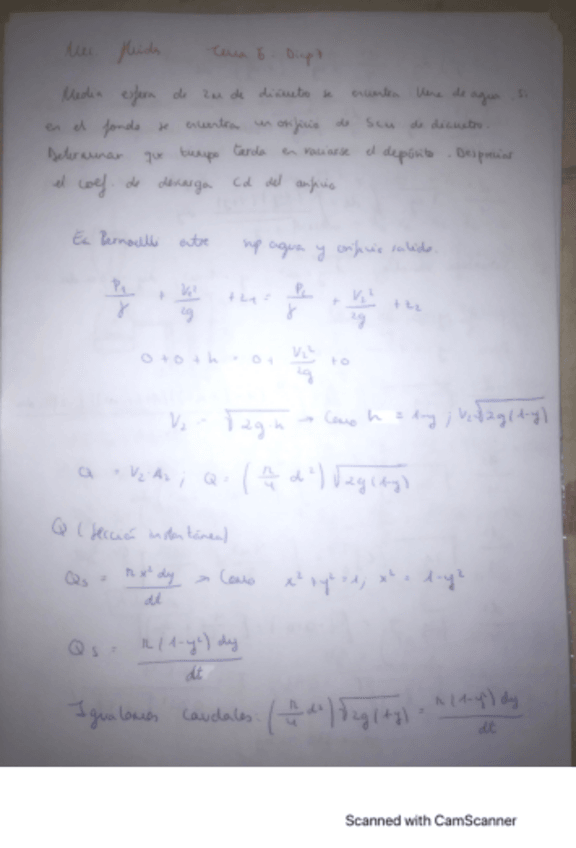 Tema 6
Media esfera de 2m de diámetro se encuentra llena de agua. Si
en el fondo se encuentra un orificio de 5cm de diámetro.
Determinar que tiempo tarda en vaciarse el depósito. Despreciar
el coef. de descarga Cd del orificio
Ec Bernoulli entre sup agua y orificio salida.
P₁/γ + V₁²/2g + z₁ = P₂/γ + V₂²/2g + z₂
0 + 0 + h = 0 + V₂²/2g + 0
V₂ = √2g·h → Como h = 1-y ; V₂ √2g(1-y)
Q = V₂·A₂ ; Q = (π/4 d²) √2g(1-y)
Q (Sección instantánea)
Qs = π x² dy / dt → Como x² + y² = 1, x² = 1-y²
Qs = π(1-y²) dy / dt
Igualamos caudales: (π/4 d²) √2g(1-y) = π(1-y²) dy / dt
Scanned with CamScanner